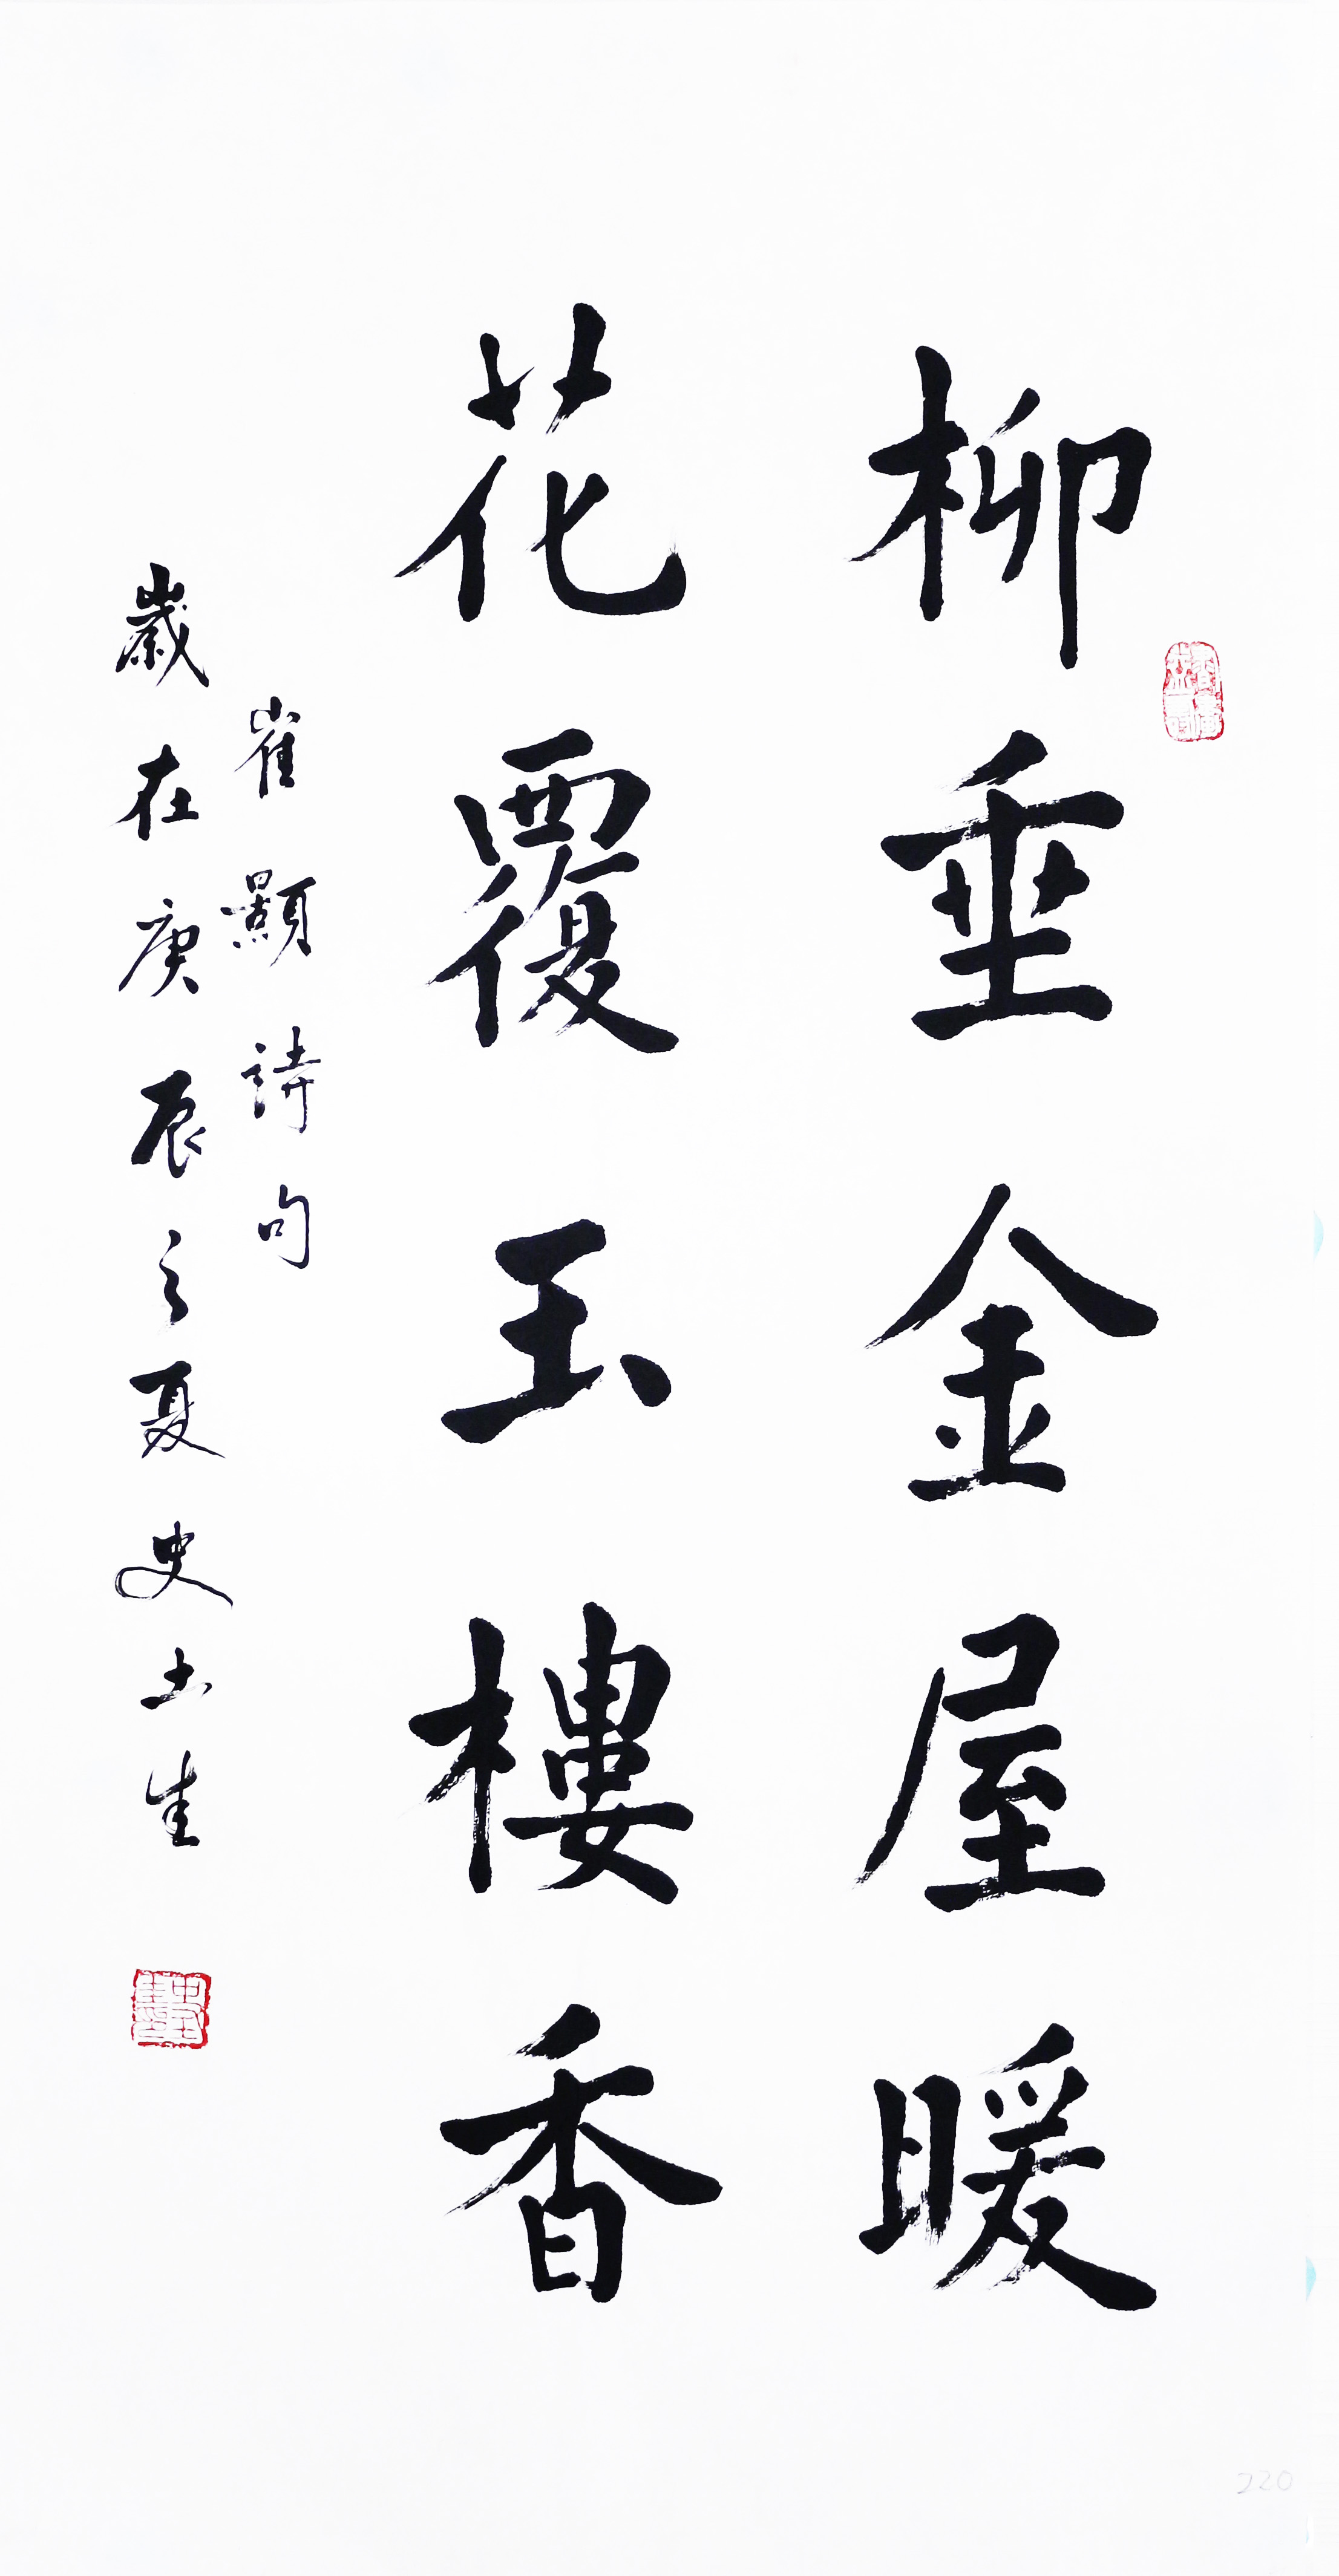 柳垂金屋暖
花覆玉樓香
崔顥詩句
歲在庚辰之夏史土生
220